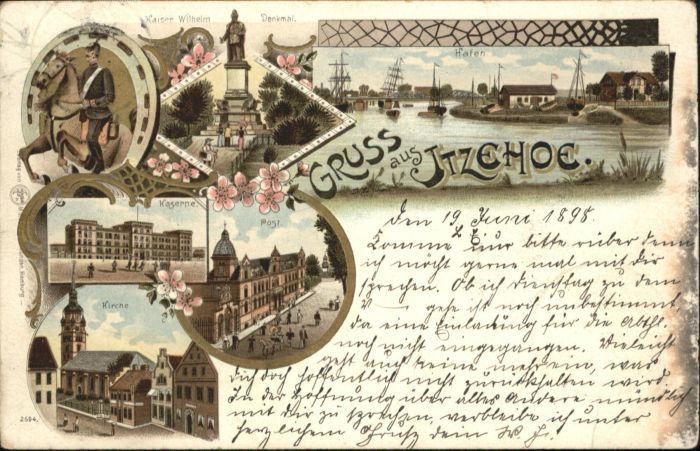 Kaiser Wilhelm Denkmal.
Hafen
GRUSS aus ITZEHOE.
Kaserne.
Post
Kirche
Den 19. Juni 1898.
Komme nur bitte rüber denn
ich möcht gerne mal mit dir
sprechen. Ob ich Dienstag zu dem
gehe ist noch unbestimmt
da eine Einladung für die Abthl.
noch nicht eingegangen. Vieleicht
geht auch keine mehr ein, was
dich doch hoffentlich nicht zurückhalten wird
In der Hoffnung über alles Andere mündlich
mit dir zu sprechen, verbleibe ich unter
herzlichem Gruß dein
2694.